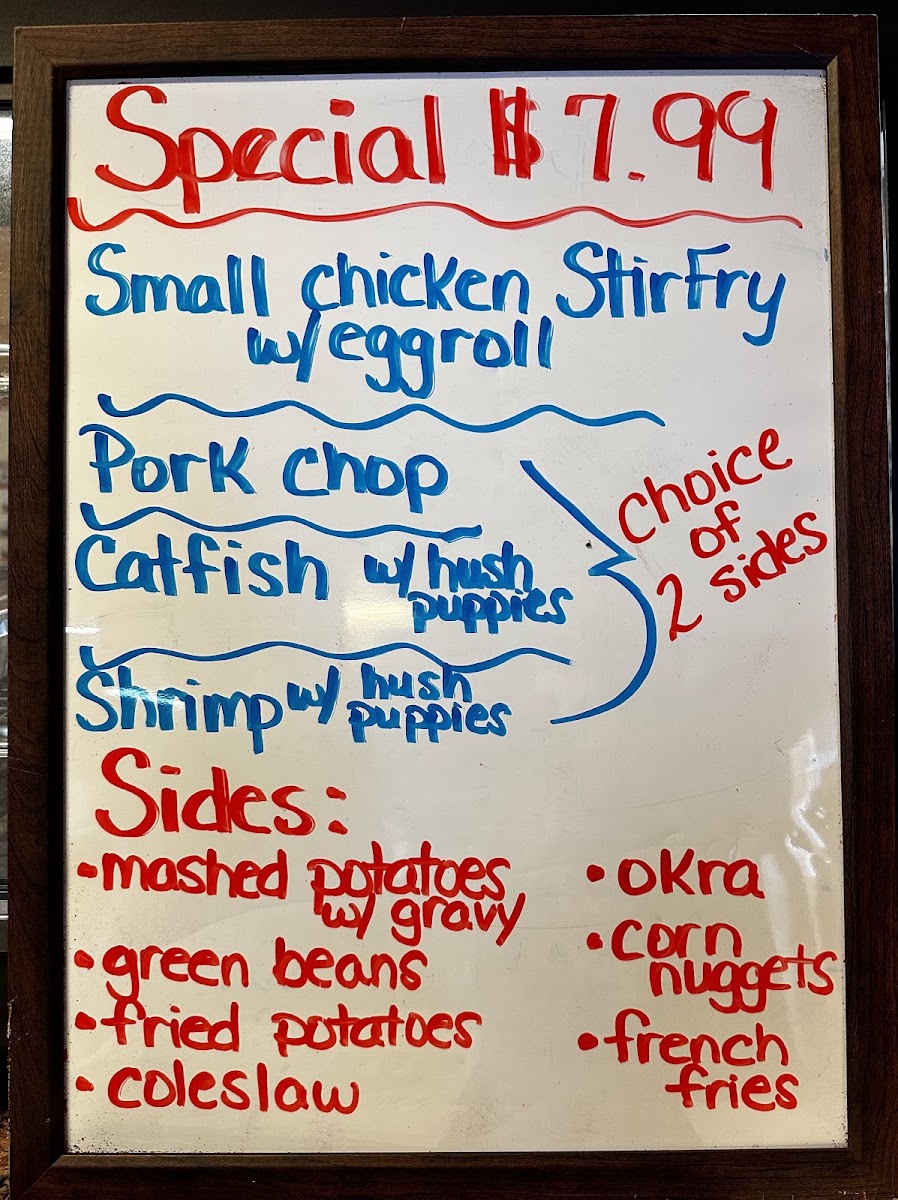 Special $7.99
Small chicken StirFry
w/eggroll
Pork chop
Catfish w/ hush
puppies
Shrimp w/ hush
puppies
choice
of
2 sides
Sides:
• mashed potatoes
w/ gravy
• green beans
• fried potatoes
• coleslaw
• okra
• corn
nuggets
• french
fries